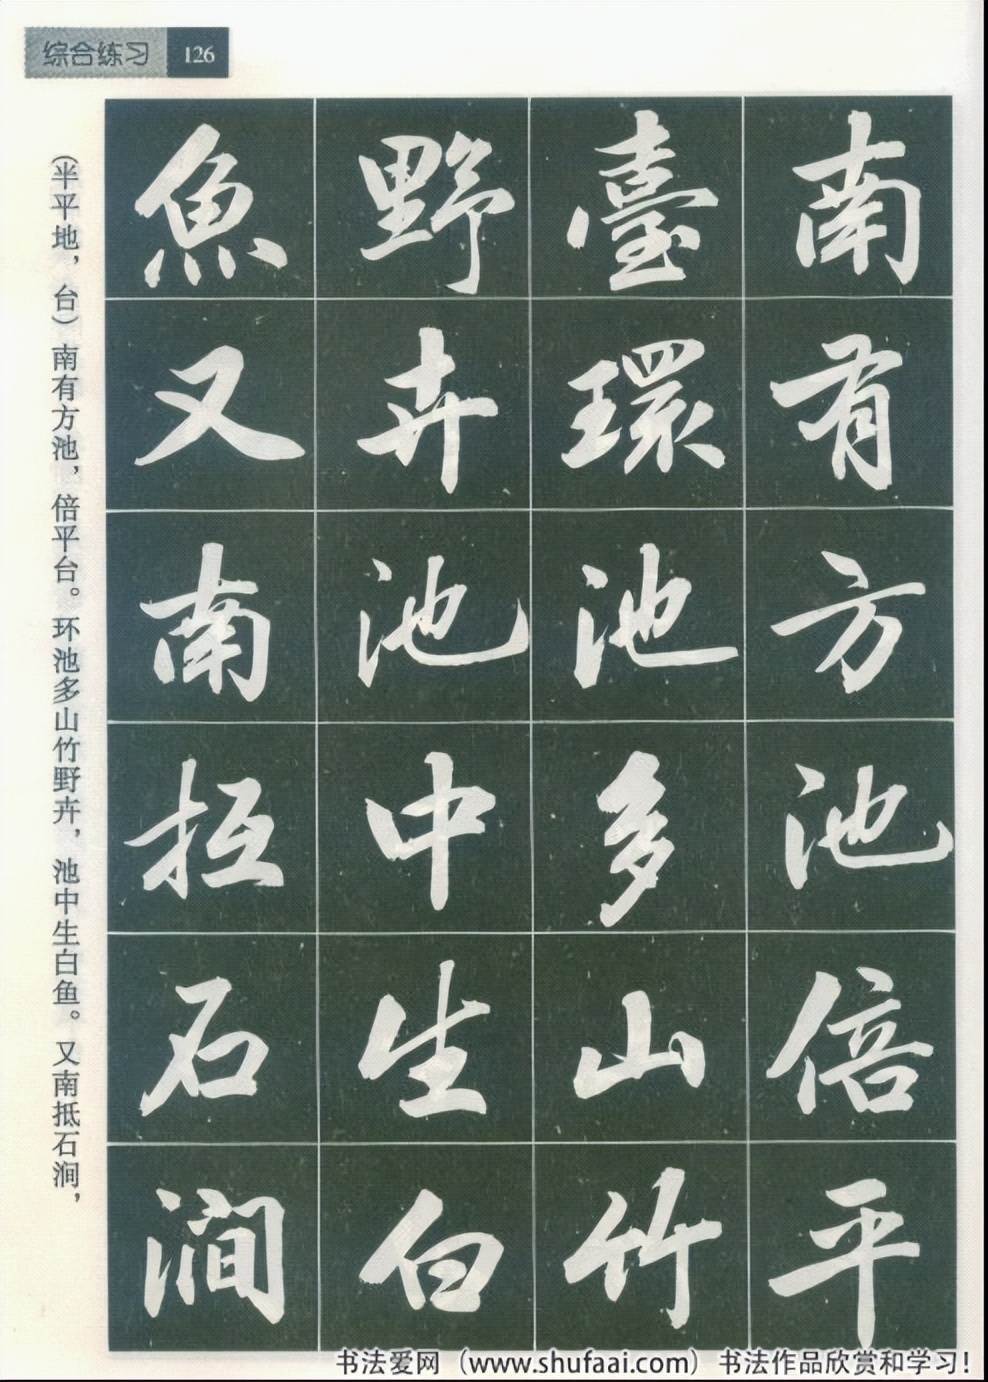 综合练习 126
南有方池倍平
臺環池多山竹
野卉池中生白
魚又南抵石澗
(半平地，台)南有方池，倍平台。环池多山竹野卉，池中生白鱼。又南抵石涧，
书法爱网（www.shufaai.com）书法作品欣赏和学习！